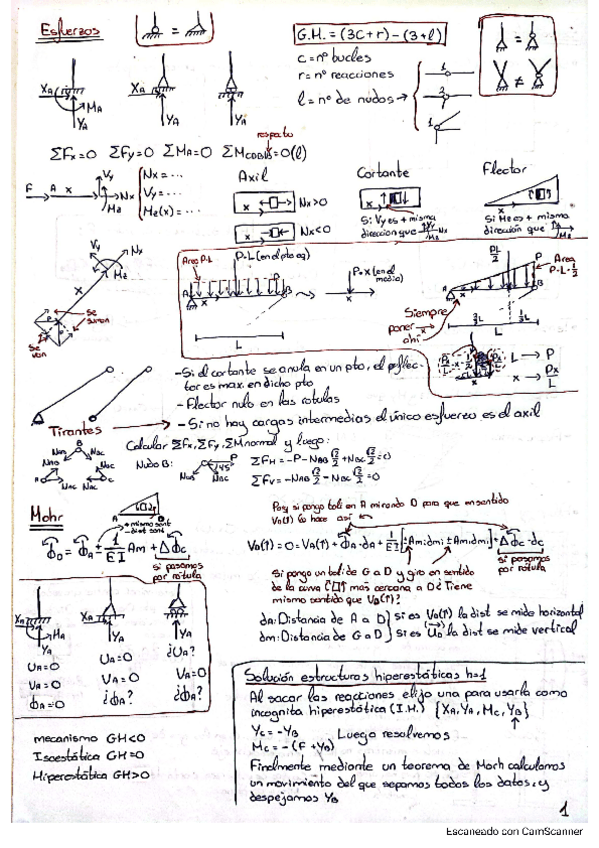 Esfuerzos
G.H. = (3C + r) - (3 + l)
c = nº bucles
r = nº reacciones
l = nº de nudos →
XA
MA
YA
XA
YA
YA
respecto
ΣFx=0 ΣFy=0 ΣMA=0 ΣM
=0(l)
F A x
Vy
Nx
Mz
Nx = ...
Vy = ...
Mz(x) = ...
Axil
Nx>0
Nx<0
Cortante
Si Vy es + misma
direccion que
Flector
Si Mz es + misma
dirección que
Vy
Nx
Mz
x
Se suman
Se van
Area P·L
P·L (en el pto eq)
A
B
L
P·x (en el medio)
x
PL/2
P
Area P·L·1/2
Siempre poner ahi
2/3L
1/3L
L
L → P
x → Px/L
- Si el cortante se anula en un pto, el flector es max. en dicho pto
- Flector nulo en las rotulas
Tirantes → - Si no hay cargas intermedias el único esfuerzo es el axil
Calcular ΣFx, ΣFy, ΣM normal y luego:
Nudo B:
P
45°
NAB
NBC
ΣFH = -P - NAB √2/2 + NBC √2/2 = 0
ΣFV = -NAB √2/2 - NBC √2/2 = 0
Mohr
+ mismo sent
- dist sent
ΦD = ΦA ± 1/EI Am + ΔΦc
si pasamos por rótula
en A mirando D para que en sentido
VD(↑) lo hace asi
VD(↑) = 0 = VA(↑) + ΦA·dA + 1/EI [±Am·dm ± Am·dm] + ΔΦc·dc
si pasamos por rótula
Si pongo un boli de G a D y giro en sentido
de la curva
más cercana a D ¿Tiene
mismo sentido que VD(↑)?
dA: Distancia de A a D
dm: Distancia de G a D
Si es VD(↑) la dist se mide horizontal
Si es UD la dist se mide vertical
XA
MA
YA
UA=0
VA=0
ΦA=0
XA
YA
UA=0
VA=0
¿ΦA?
YA
¿UA?
VA=0
¿ΦA?
mecanismo GH<0
Isoestática GH=0
Hiperestática GH>0
Solución estructuras hiperestáticas h=1
Al sacar las reacciones elijo una para usarla como
incognita hiperestática (I.H.) {XA, YA, Mc, YB}
Yc = -YB
Mc = -(F + YB)
Luego resolvemos
Finalmente mediante un teorema de Morh calculamos
un movimiento del que sepamos todos los datos, y
despejamos YB
1
Escaneado con CamScanner